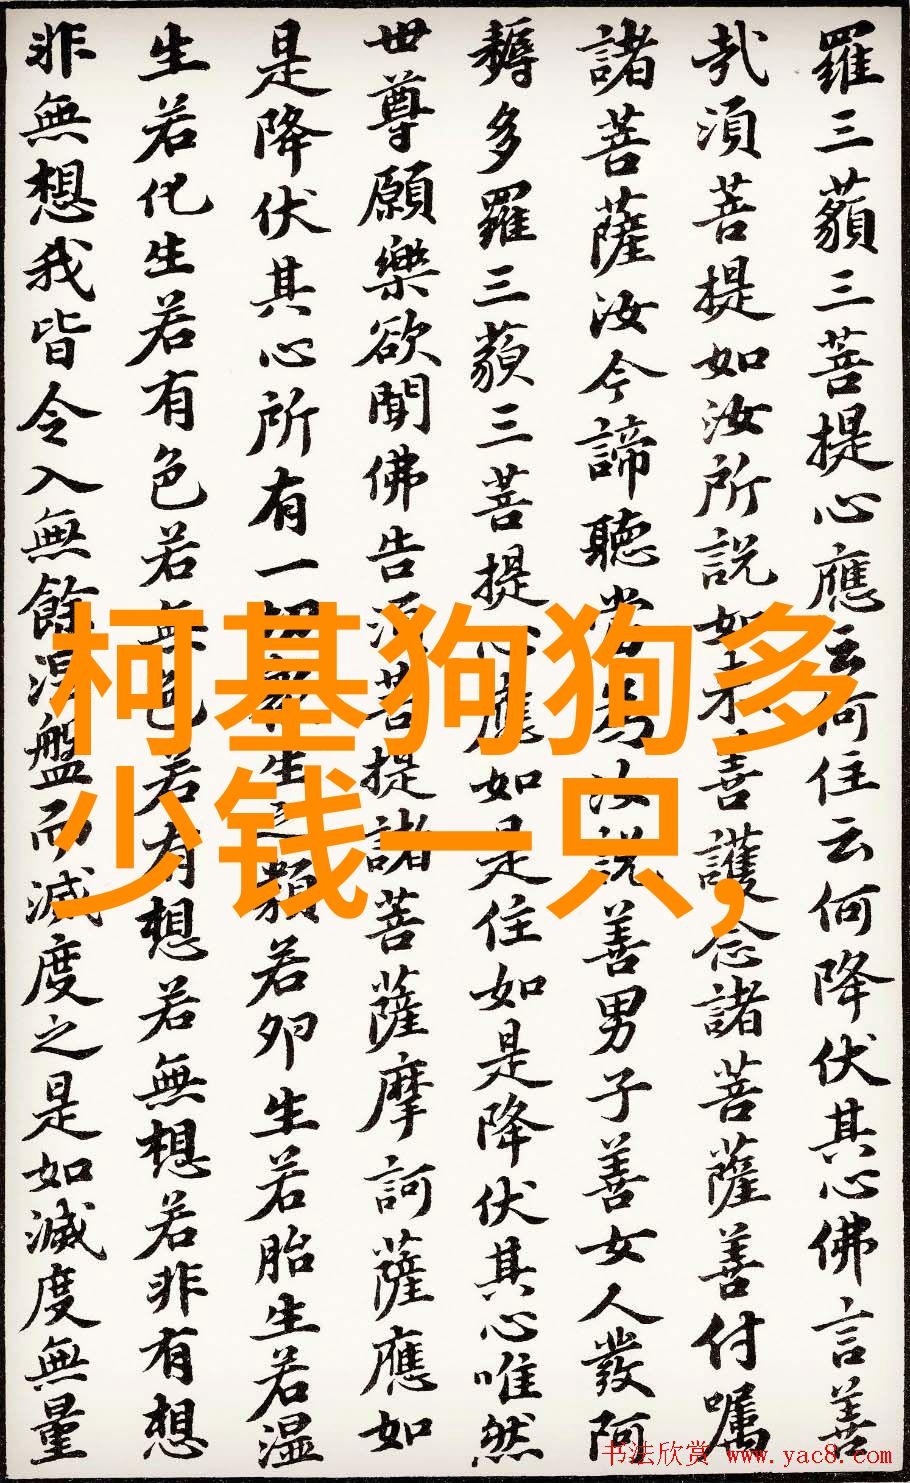 羅三藐三菩提心應云何住云何降伏其心佛言善
哉須菩提如汝所說如來善護念諸菩薩善付囑
諸菩薩汝今諦聽當為汝說善男子善女人發阿
耨多羅三藐三菩提心應如是住如是降伏其心唯然
世尊願樂欲聞佛告須菩提諸菩薩摩訶薩應如
是降伏其心所有一切眾生之類若卵生若胎生若濕
生若化生若有色若無色若有想若無想若非有想
非無想我皆令入無餘涅盤而滅度之是如滅度無量
柯基狗狗多
少钱一只,
书法欣赏 www.yac8.com